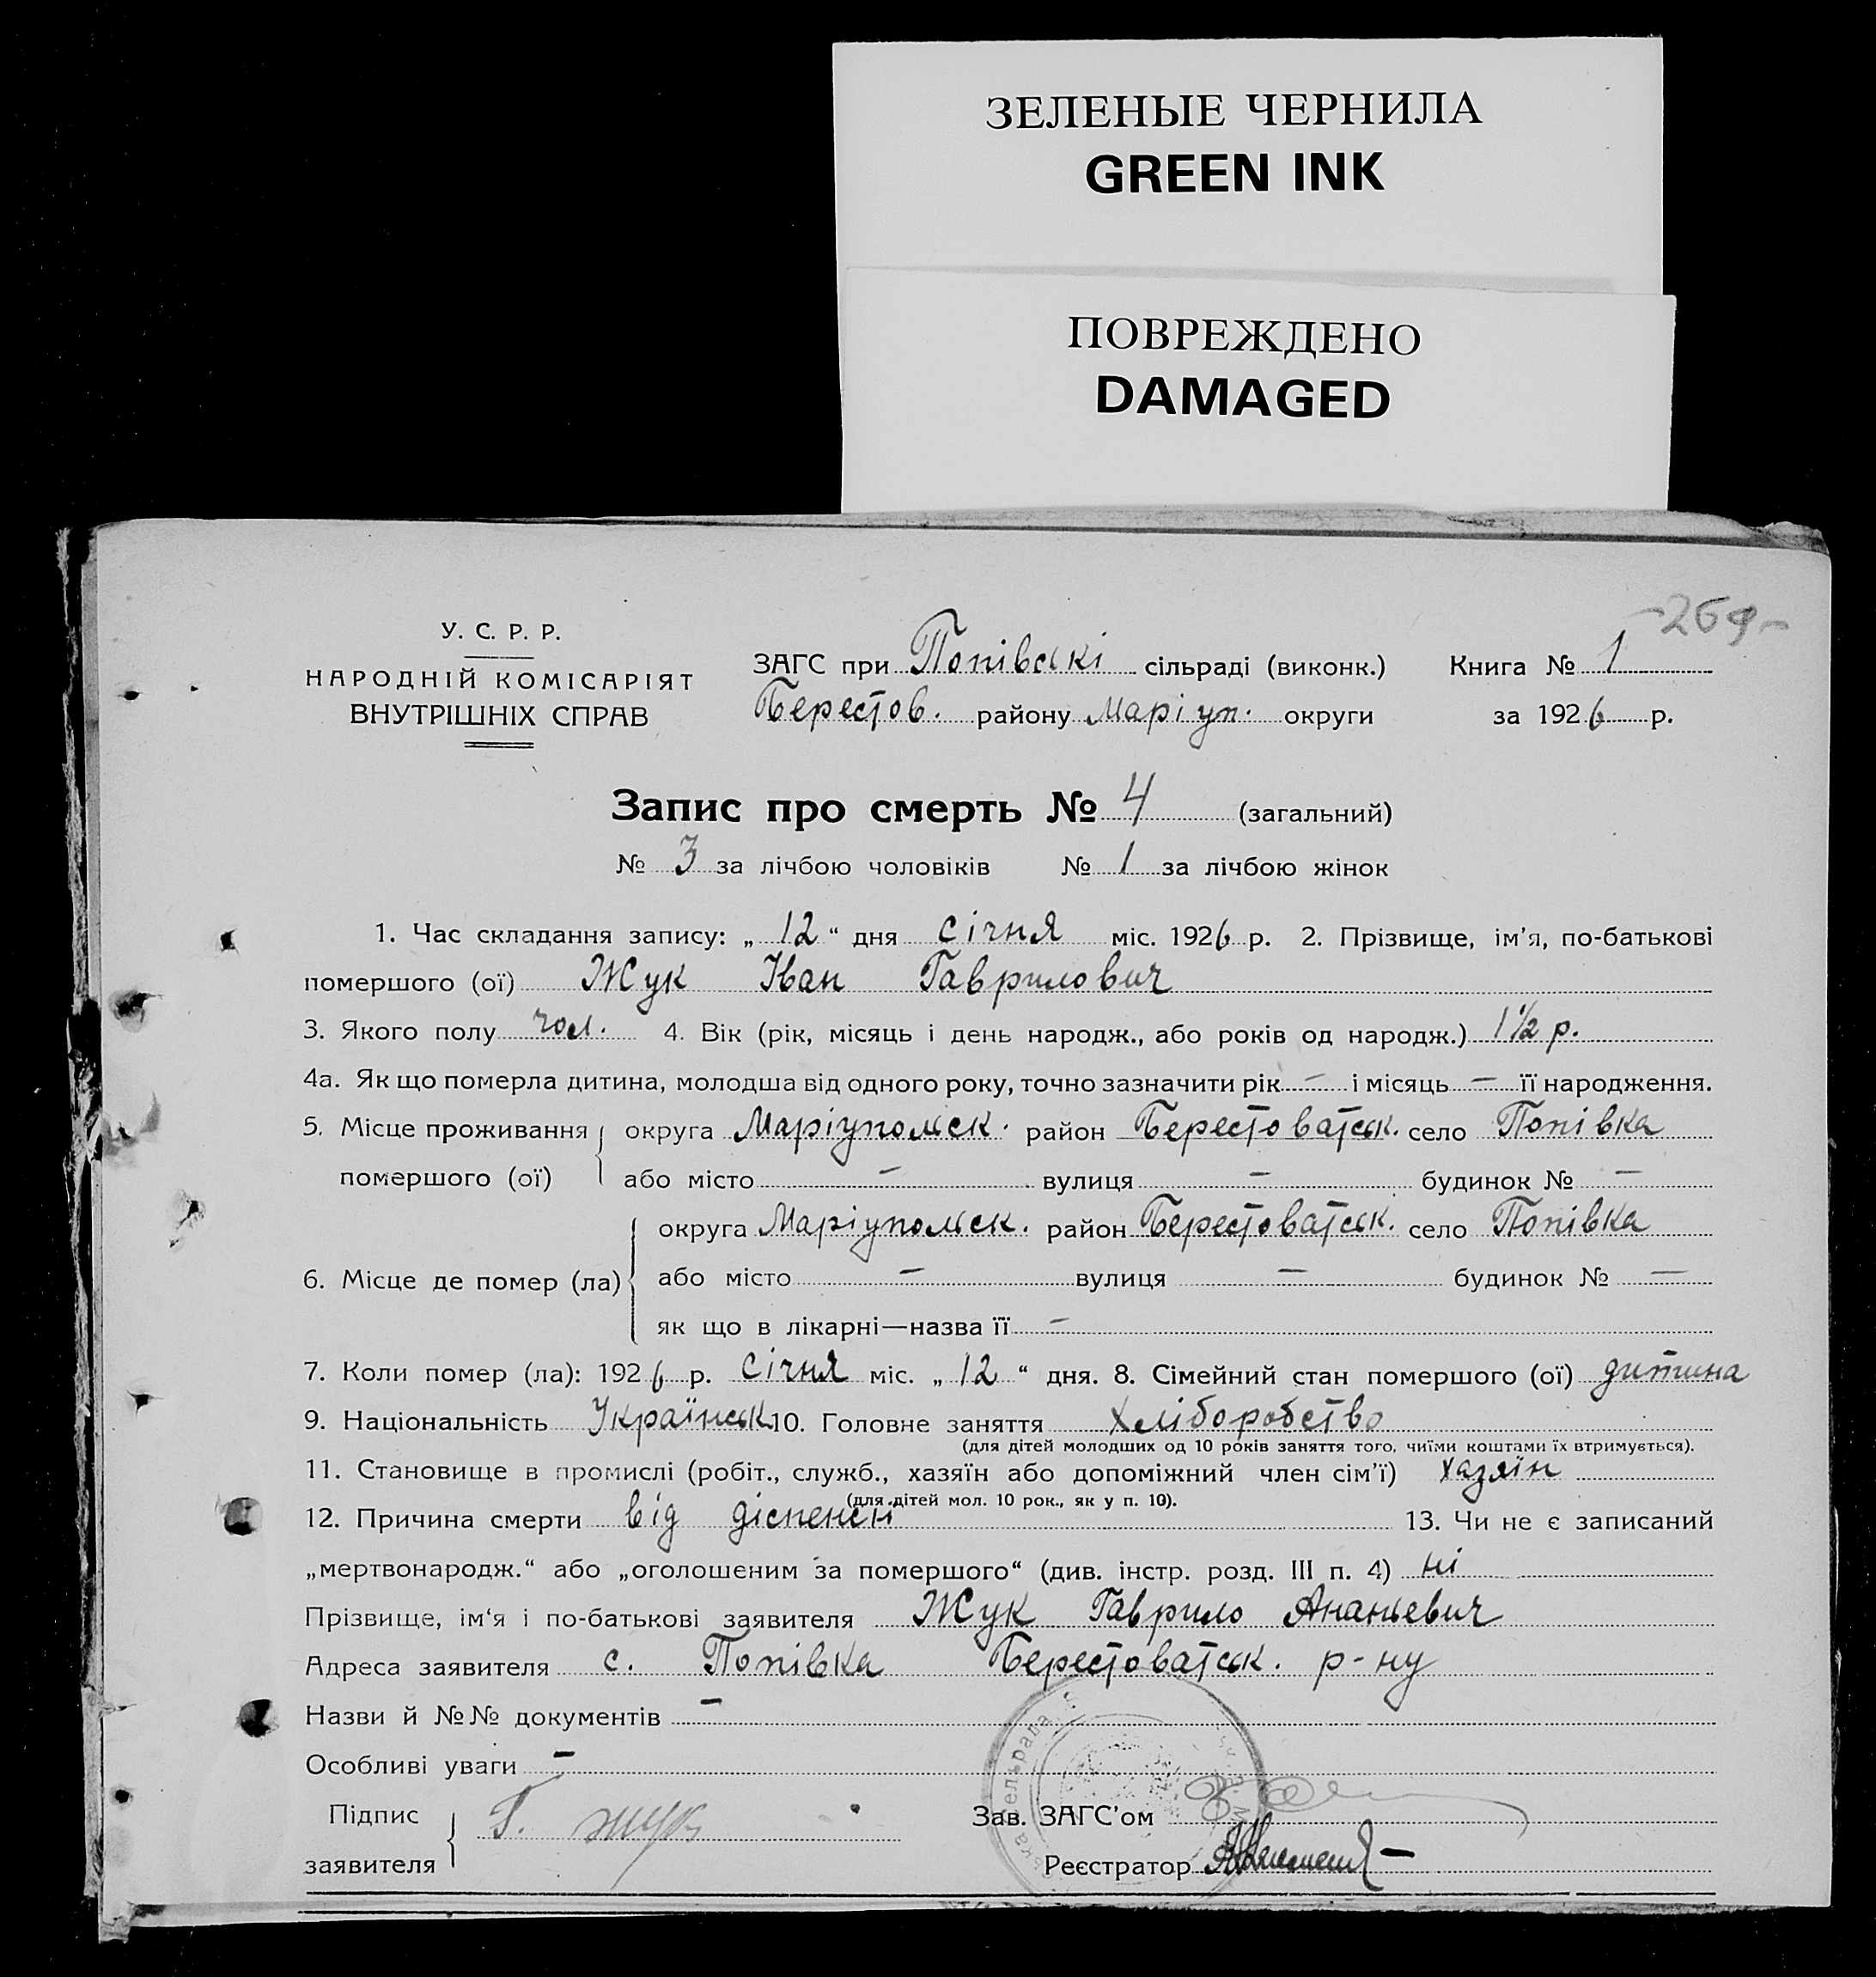 ЗЕЛЕНЫЕ ЧЕРНИЛА
GREEN INK
ПОВРЕЖДЕНО
DAMAGED
-269-
У. С. Р. Р.
НАРОДНІЙ КОМІСАРІЯТ
ВНУТРІШНІХ СПРАВ
ЗАГС при Попівські сільраді (виконк.) Книга № 1
Берестов. району Маріуп. округи за 1926 р.
Запис про смерть № 4 (загальний)
№ 3 за лічбою чоловіків № 1 за лічбою жінок
1. Час складання запису: „12“ дня січня міс. 1926 р. 2. Прізвище, ім’я, по-батькові
помершого (ої) Жук Іван Гаврилович
3. Якого полу чол. 4. Вік (рік, місяць і день народж., або років од народж.) 1½ р.
4а. Як що померла дитина, молодша від одного року, точно зазначити рік — і місяць — її народження.
5. Місце проживання округа Маріупольск. район Берестоватськ. село Попівка
помершого (ої) або місто — вулиця — будинок № —
округа Маріупольск. район Берестоватськ. село Попівка
6. Місце де помер (ла) або місто — вулиця — будинок № —
як що в лікарні—назва її —
7. Коли помер (ла): 1926 р. січня міс. „12“ дня. 8. Сімейний стан помершого (ої) дитина
9. Національність Українськ 10. Головне заняття хліборобство
(для дітей молодших од 10 років заняття того, чиїми коштами їх втримується).
11. Становище в промислі (робіт., служб., хазяїн або допоміжний член сім’ї) хазяїн
(для дітей мол. 10 рок., як у п. 10).
12. Причина смерти від діспенсії 13. Чи не є записаний
„мертвонародж.“ або „оголошеним за помершого“ (див. інстр. розд. III п. 4) ні
Прізвище, ім‘я і по-батькові заявителя Жук Гаврило Ананьевич
Адреса заявителя с. Попівка Берестоватськ. р-ну
Назви й №№ документів —
Особливі уваги —
Підпис Г. Жук Зав. ЗАГС’ом
заявителя Реєстратор